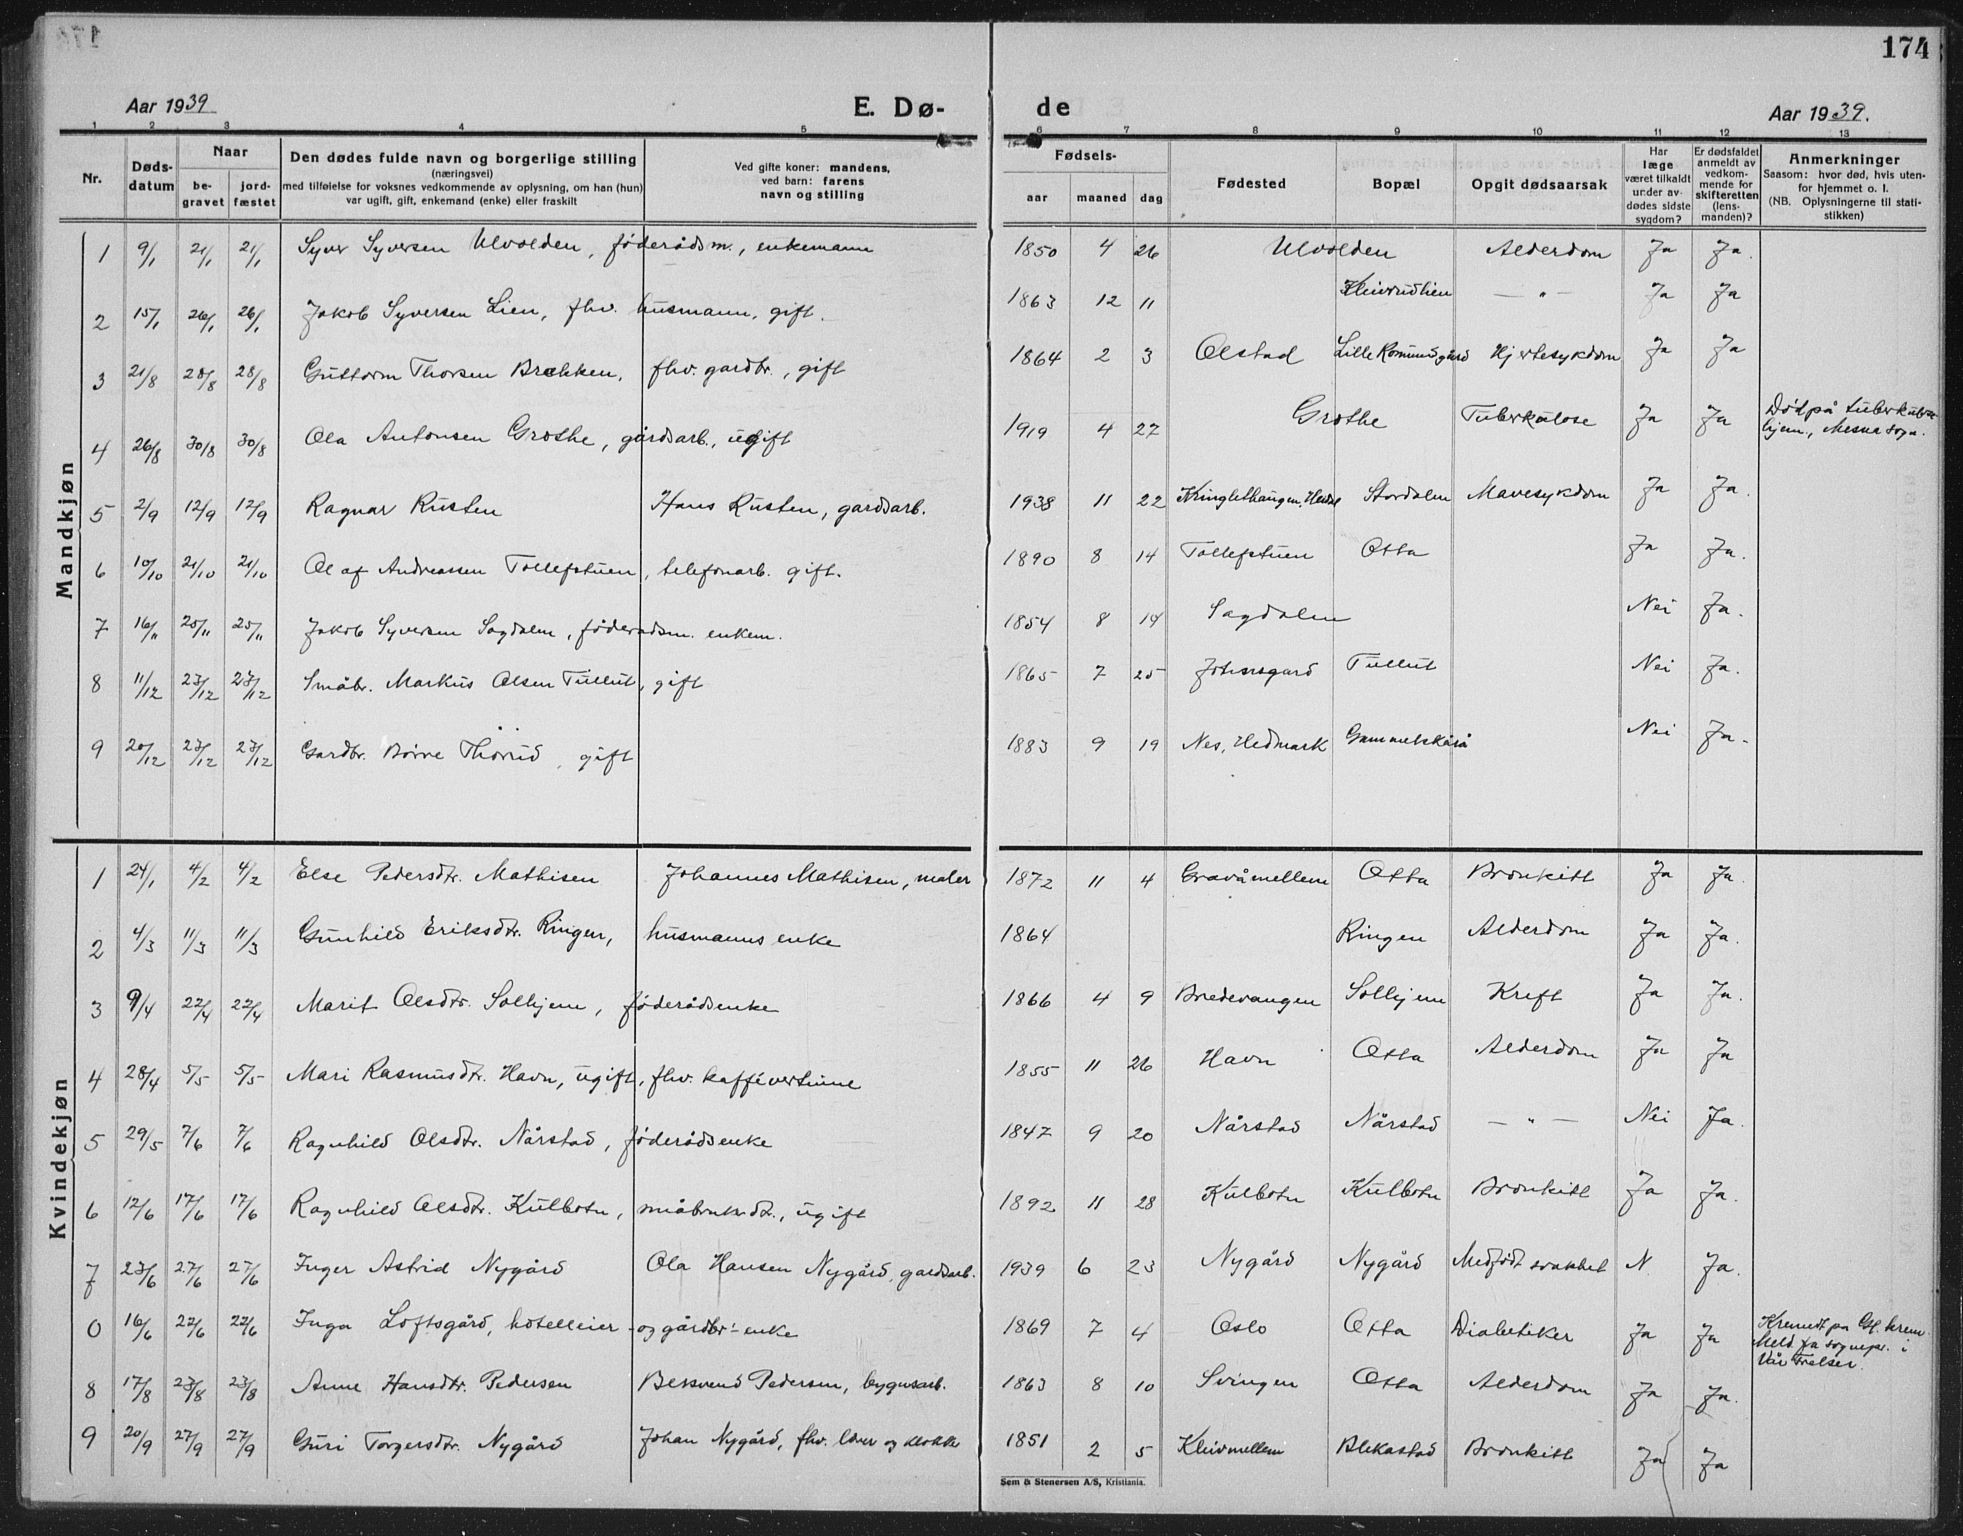 174
Aar 1939
E. Dø-
de
Aar 1939.
1 2 3 4 5 6 7 8 9 10 11 12 13
Nr.
Døds-
datum
Naar
be-
gravet
jord-
fæstet
Den dødes fulde navn og borgerlige stilling
(næringsvei)
med tilføielse for voksnes vedkommende av oplysning, om han (hun)
var ugift, gift, enkemand (enke) eller fraskilt
Ved gifte koner: mandens,
ved barn: farens
navn og stilling
Fødsels-
aar maaned dag
Fødested
Bopæl
Opgit dødsaarsak
Har
læge
været tilkaldt
under av-
dødes sidste
sygdom?
Er dødsfaldet
anmeldt av
vedkom-
mende for
skifteretten
(lens-
manden)?
Anmerkninger
Saasom: hvor død, hvis uten-
for hjemmet o. l.
(NB. Oplysningerne til stati-
stikken)
Mandkjøn
1 9/1 21/1 21/1 Syver Syversen Ulvolden, föderådsm., enkemann 1850 4 26 Ulvolden Alderdom Ja Ja.
2 15/1 26/1 26/1 Jakob Syversen Lien, fhv. husmann, gift. 1863 12 11 Kleivrudlien — " — Ja Ja
3 21/8 28/8 28/8 Guttorm Thorsen Brekken, fhv. gardbr., gift 1864 2 3 Olstad Lille Romundgård Hjertesykdom Ja Ja
4 26/8 30/8 30/8 Ola Antonsen Grothe, gårdsarb., ugift 1919 4 27 Grothe Tuberkulose Ja Ja Död på tuberkulose
hjem, Mesna sogn.
5 2/9 12/9 12/9 Ragnar Rusten Hans Rusten, gardsarb. 1938 11 22 Kringlethaugen, Heidal Stordalen Mavesykdom Ja Ja.
6 10/10 21/10 21/10 Olaf Andreassen Tollefstuen, telefonarb. gift. 1890 8 14 Tollefstuen Otta Ja Ja.
7 16/11 25/11 25/11 Jakob Syversen Sagdalen, föderadsm. enkem. 1854 8 14 Sagdalen Nei Ja.
8 11/12 23/12 23/12 Småbr. Markus Olsen Tullut, gift 1865 7 25 Jotunsgard Tullut Nei Ja.
9 20/12 23/12 23/12 Gardbr. Börre Thorud, gift 1883 9 19 Nes, Hedmark Gammelskåiå Nei Ja.
Kvindekjøn
1 24/1 4/2 4/2 Else Pedersdtr. Mathisen Johannes Mathisen, maler 1872 11 4 Gravåmellem Otta Bronkitt Ja Ja.
2 4/3 11/3 11/3 Gunhild Eriksdtr. Ringen, husmanns enke 1864 Ringen Alderdom Ja Ja.
3 9/4 22/4 22/4 Marit Olsdtr. Solhjem, föderådsenke 1866 4 9 Bredevangen Solhjem Kreft Ja Ja.
4 28/4 5/5 5/5 Mari Rasmusdtr. Havn, ugift, fhv. kaffévertinne 1855 11 26 Havn Otta Alderdom Ja Ja
5 29/5 7/6 7/6 Ragnhild Olsdtr. Nårstad, föderådsenke 1847 9 20 Nårstad Nårstad — " — Nei Ja.
6 12/6 17/6 17/6 Ragnhild Olsdtr. Kulbotn, småbrukrdt., ugift 1892 11 28 Kulbotn Kulbotn Bronkitt Ja Ja.
7 23/6 27/6 27/6 Inger Astrid Nygård Ola Hansen Nygård, gardsarb. 1939 6 23 Nygård Nygård Medfödt svakhet N. Ja.
0 16/6 22/6 22/6 Inga Loftsgård, hotelleier- og gårdbr.-enke 1869 7 4 Oslo Otta Diabetiker Ja Ja Kremert på Gl. krem.
Meld. fra sognepr. i
Vår Frelser.
8 17/8 23/8 23/8 Anne Hansdtr. Pedersen Bersvend Pedersen, bygnsarb. 1863 8 10 Svingen Otta Alderdom Ja Ja.
9 20/9 27/9 27/9 Guri Torgersdtr. Nygård Johan Nygård, fhv. lærer og klokker 1851 2 5 Kleivmellem Blekastad Bronkitt Ja Ja
Sem & Stenersen A/S, Kristiania.